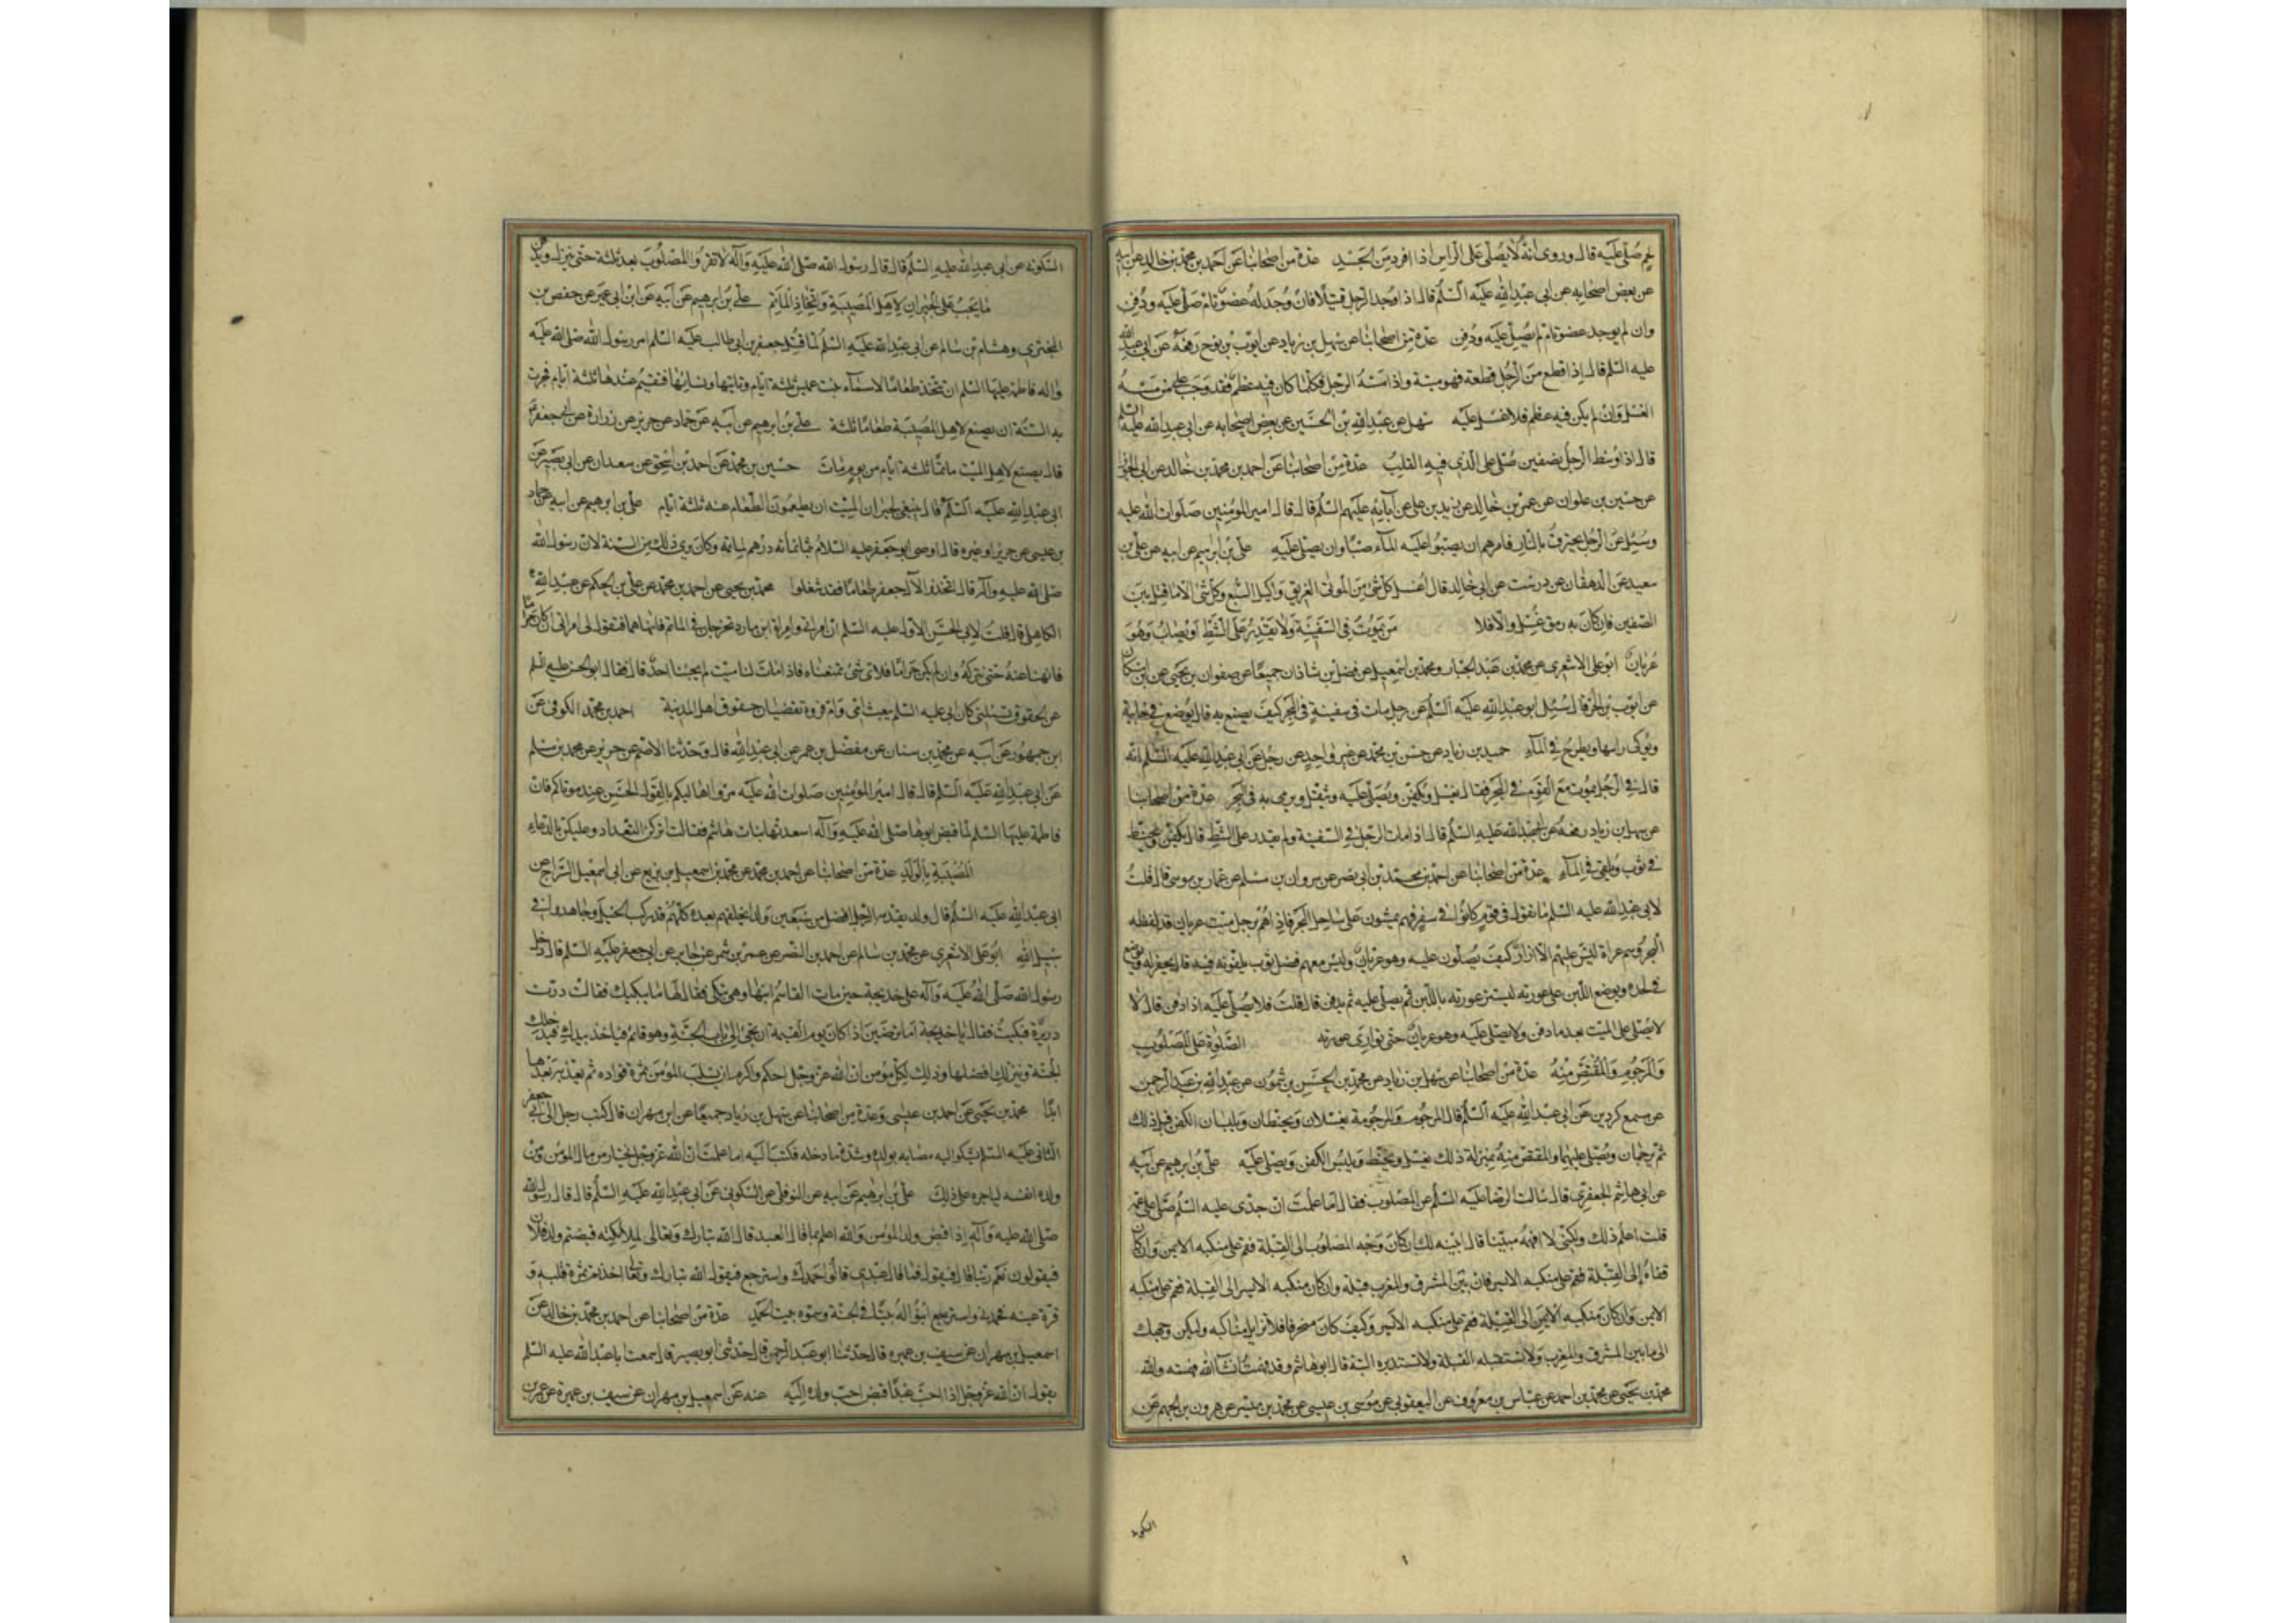 لحم صُلّي عليه قال وروى انه لا يُصلّى على الراس اذا افرد من الجسد عدة من اصحابنا عن احمد بن محمد بن خالد عن ابيه
عن بعض اصحابه عن ابى عبد الله عليه السلم قال اذا وجد الرجل قتيلا فان وُجد له عضو تام صلى عليه ودفن
وان لم يوجد عضو تام لم يصل عليه ودفن عدة من اصحابنا عن سهل بن زياد عن ايوب بن نوح رفعه عن ابى عبد الله
عليه السلم قال اذا قطع من الرجل قطعة فهو ميتة واذا مسّه الرجل فكلما كان فيه عظم فقد وجب على من مسّه
الغسل وان لم يكن فيه عظم فلا غسل عليه سهل عن عبد الله بن الحسين عن بعض اصحابه عن ابى عبد الله عليه السلم
قال اذا وسط الرجل بنصفين صُلى على الذى فيه القلب عدة من اصحابنا عن احمد بن محمد بن خالد عن ابى الجوزا
عن حسين بن علوان عن عمرو بن خالد عن زيد بن على عن آبائه عليهم السلم قال قال امير المؤمنين صلوات الله عليه
وسُئل عن الرجل يحترق بالنار فامرهم ان يصبوا عليه الماء صبا وان يصلى عليه على بن ابرهيم عن ابيه عن على بن
سعيد عن الدهقان عن درست عن ابى خالد قال اغسل كل شئ من الموتى الغريق واكيل السبع وكل شئ الا ما قتل بين
الصفين فان كان به رمق غُسل والا فلا من يموت فى السفينة ولا يقدر على الشط او يصاب وهو
عُريان ابو على الاشعرى عن محمد بن عبد الجبار ومحمد بن اسمعيل عن فضل بن شاذان جميعا عن صفوان بن يحيى عن ابن مسكان
عن ايوب بن الحر قال سُئل ابو عبد الله عليه السلم عن رجل مات فى سفينة فى البحر كيف يصنع به قال يوضع فى خابية
ويُوكى راسها ويطرح فى الماء حميد بن زياد عن حسن بن محمد عن غير واحد عن رجل عن ابى عبد الله عليه السلم انه
قال فى الرجل يموت مع القوم فى البحر فقال يغسل ويكفن ويُصلى عليه ويثقل ويرمى به فى البحر عدة من اصحابنا
عن سهل بن زياد رفعه عن ابى عبد الله عليه السلم قال اذا مات الرجل فى السفينة ولم يقدر على الشط قال يكفن ويحنط
فى ثوب ويلقى فى الماء عدة من اصحابنا عن احمد بن محمد بن ابى نصر عن مروان بن مسلم عن عمار بن موسى قال قلت
لابى عبد الله عليه السلم ما تقول فى قوم كانوا فى سفر فهم يمشون على ساحل البحر فاذا هم برجل ميت عريان قد لفظه
البحر وهم عراة ليس عليهم الا ازار كيف يُصلون عليه وهو عريان وليس معهم فضل ثوب يلفونه فيه قال يحفر له ويوضع
فى لحده ويوضع اللبن على عورته لتستر عورته باللبن ثم يصلى عليه ثم يدفن قال قلت فلا يُصلى عليه اذا دفن قال لا
لا يُصلى على الميت بعد ما دفن ولا يصلى عليه وهو عريان حتى توارى عورته الصلوة على المصلوب
والمرجوم والمقتص منه عدة من اصحابنا عن سهل بن زياد عن محمد بن الحسن بن شمون عن عبد الله بن عبد الرحمن
عن مسمع كردين عن ابى عبد الله عليه السلم قال المرجوم والمرجومة يغسلان ويحنطان ويلبسان الكفن قبل ذلك
ثم يرجمان ويُصلى عليهما والمقتص منه بمنزلة ذلك يغسل ويحنط ويلبس الكفن ويصلى عليه على بن ابرهيم عن ابيه
عن ابى هاشم الجعفرى قال سالت الرضا عليه السلم عن المصلوب فقال اما علمت ان جدى عليه السلم صلى على عمه
قلت اعلم ذلك ولكنى لا افهمه مبينا قال ابينه لك ان كان وجه المصلوب الى القبلة فقم على منكبه الايمن وان كان
قفاه الى القبلة فقم على منكبه الايسر فان بين المشرق والمغرب قبلة وان كان منكبه الايسر الى القبلة فقم على منكبه
الايمن وان كان منكبه الايمن الى القبلة فقم على منكبه الايسر وكيف كان منحرفا فلا تزايل مناكبه وليكن وجهك
الى ما بين المشرق والمغرب ولا تستقبله القبلة ولا تستدبره البتة قال ابو هاشم وقد فهمت ان شاء الله فهمته والله
محمد بن يحيى عن محمد بن احمد عن عباس بن معروف عن اليعقوبى عن موسى بن عيسى عن محمد بن ميسر عن هرون بن الجهم عن
السكونى
السكونى عن ابى عبد الله عليه السلم قال قال رسول الله صلى الله عليه وآله لا تقروا المصلوب بعد ثلثة حتى ينزل ويدفن
ما يجب على الجيران لاهل المصيبة واتخاذ المأتم على بن ابرهيم عن ابيه عن ابن ابى عمير عن حفص بن
البخترى وهشام بن سالم عن ابى عبد الله عليه السلم لما قتل جعفر بن ابى طالب عليه السلم امر رسول الله صلى الله عليه
واله فاطمة عليها السلم ان تتخذ طعاما لاسماء بنت عميس ثلثة ايام وتاتيها ونسائها فتقيم عندها ثلثة ايام فجرت
به السنة ان يصنع لاهل المصيبة طعاما ثلثة على بن ابرهيم عن ابيه عن حماد عن حريز عن زرارة عن ابى جعفر
قال يصنع لاهل الميت ماتما ثلثة ايام من يوم مات حسين بن محمد عن احمد بن اسحق عن سعدان عن ابى بصير عن
ابى عبد الله عليه السلم قال ينبغى لجيران الميت ان يطعموا الطعام عنه ثلثة ايام على بن ابرهيم عن ابيه عن حماد
بن عيسى عن حريز او غيره قال اوصى ابو جعفر عليه السلام بثمانمائة درهم لماتمه وكان يرى ذلك من السنة لان رسول الله
صلى الله عليه وآله قال اتخذوا لآل جعفر طعاما فقد شغلوا محمد بن يحيى عن احمد بن محمد عن على بن الحكم عن عبد الله
الكاهلى قال قلت لابى الحسن الاول عليه السلم ان امراتى وامراة ابن مارد تخرجان فى الماتم فانهاهما فتقول لى امراتى ان كان حراما
فانهنا عنه حتى نتركه وان لم يكن حراما فلاى شئ تمنعناه فاذا مات لنا ميت لم يجئنا احد قال فقال ابو الحسن عليه السلم
عن الحقوق تسئلنى كان ابى عليه السلم يبعث امى وام فروة تقضيان حقوق اهل المدينة احمد بن محمد الكوفى عن
ابن جمهور عن ابيه عن محمد بن سنان عن مفضل بن عمر عن ابى عبد الله قال وحدثنا الاصم عن حريز عن محمد بن مسلم
عن ابى عبد الله عليه السلم قال قال امير المؤمنين صلوات الله عليه مروا اهاليكم بالقول الحسن عند موتاكم فان
فاطمة عليها السلم لما قبض ابوها صلى الله عليه وآله اسعدتها بنات هاشم فقالت اتركن التعداد وعليكن بالدعاء
المصيبة بالولد عدة من اصحابنا عن احمد بن محمد عن محمد بن اسمعيل بن بزيع عن ابى اسمعيل السراج عن
ابى عبد الله عليه السلم قال ولد يقدمه الرجل افضل من سبعين ولدا يخلفهم بعده كلهم قد ركب الخيل وجاهدوا فى
سبيل الله ابو على الاشعرى عن محمد بن سالم عن احمد بن النضر عن عمرو بن شمر عن جابر عن ابى جعفر عليه السلم قال دخل
رسول الله صلى الله عليه وآله على خديجة حين مات القاسم ابنها وهى تبكى فقال لها ما يبكيك فقالت درت
دريرة فبكيت فقال يا خديجة اما ترضين اذا كان يوم القيمة ان تجئ الى باب الجنة وهو قائم فياخذ بيدك فيدخلك
الجنة وينزلك افضلها وذلك لكل مؤمن ان الله عز وجل احكم واكرم ان يسلب المؤمن ثمرة فواده ثم يعذبه بعدها
ابدا محمد بن يحيى عن احمد بن عيسى وعدة من اصحابنا عن سهل بن زياد جميعا عن ابن مهران قال كتب رجل الى ابى جعفر
الثانى عليه السلم يشكو اليه مصابه بولده وشدة ما دخله فكتب اليه اما علمت ان الله عز وجل يختار من مال المؤمن ومن
ولده انفسه لياجره على ذلك على بن ابرهيم عن ابيه عن النوفلى عن السكونى عن ابى عبد الله عليه السلم قال قال رسول الله
صلى الله عليه وآله اذا قبض ولد المؤمن والله اعلم بما قال العبد قال الله تبارك وتعالى لملائكته قبضتم ولد فلان
فيقولون نعم ربنا قال فيقول فما قال عبدى قالوا حمدك واسترجع فيقول الله تبارك وتعالى اخذتم ثمرة قلبه و
قرة عينه فحمدنى واسترجع ابنوا له بيتا فى الجنة وسموه بيت الحمد عدة من اصحابنا عن احمد بن محمد بن خالد عن
اسمعيل بن مهران عن سيف بن عميرة قال حدثنا ابو عبد الرحمن قال حدثنى ابو بصير قال سمعت ابا عبد الله عليه السلم
يقول ان الله عز وجل اذا احب عبدا قبض احب ولده اليه عنه عن اسمعيل بن مهران عن سيف بن عميرة عن عمرو بن